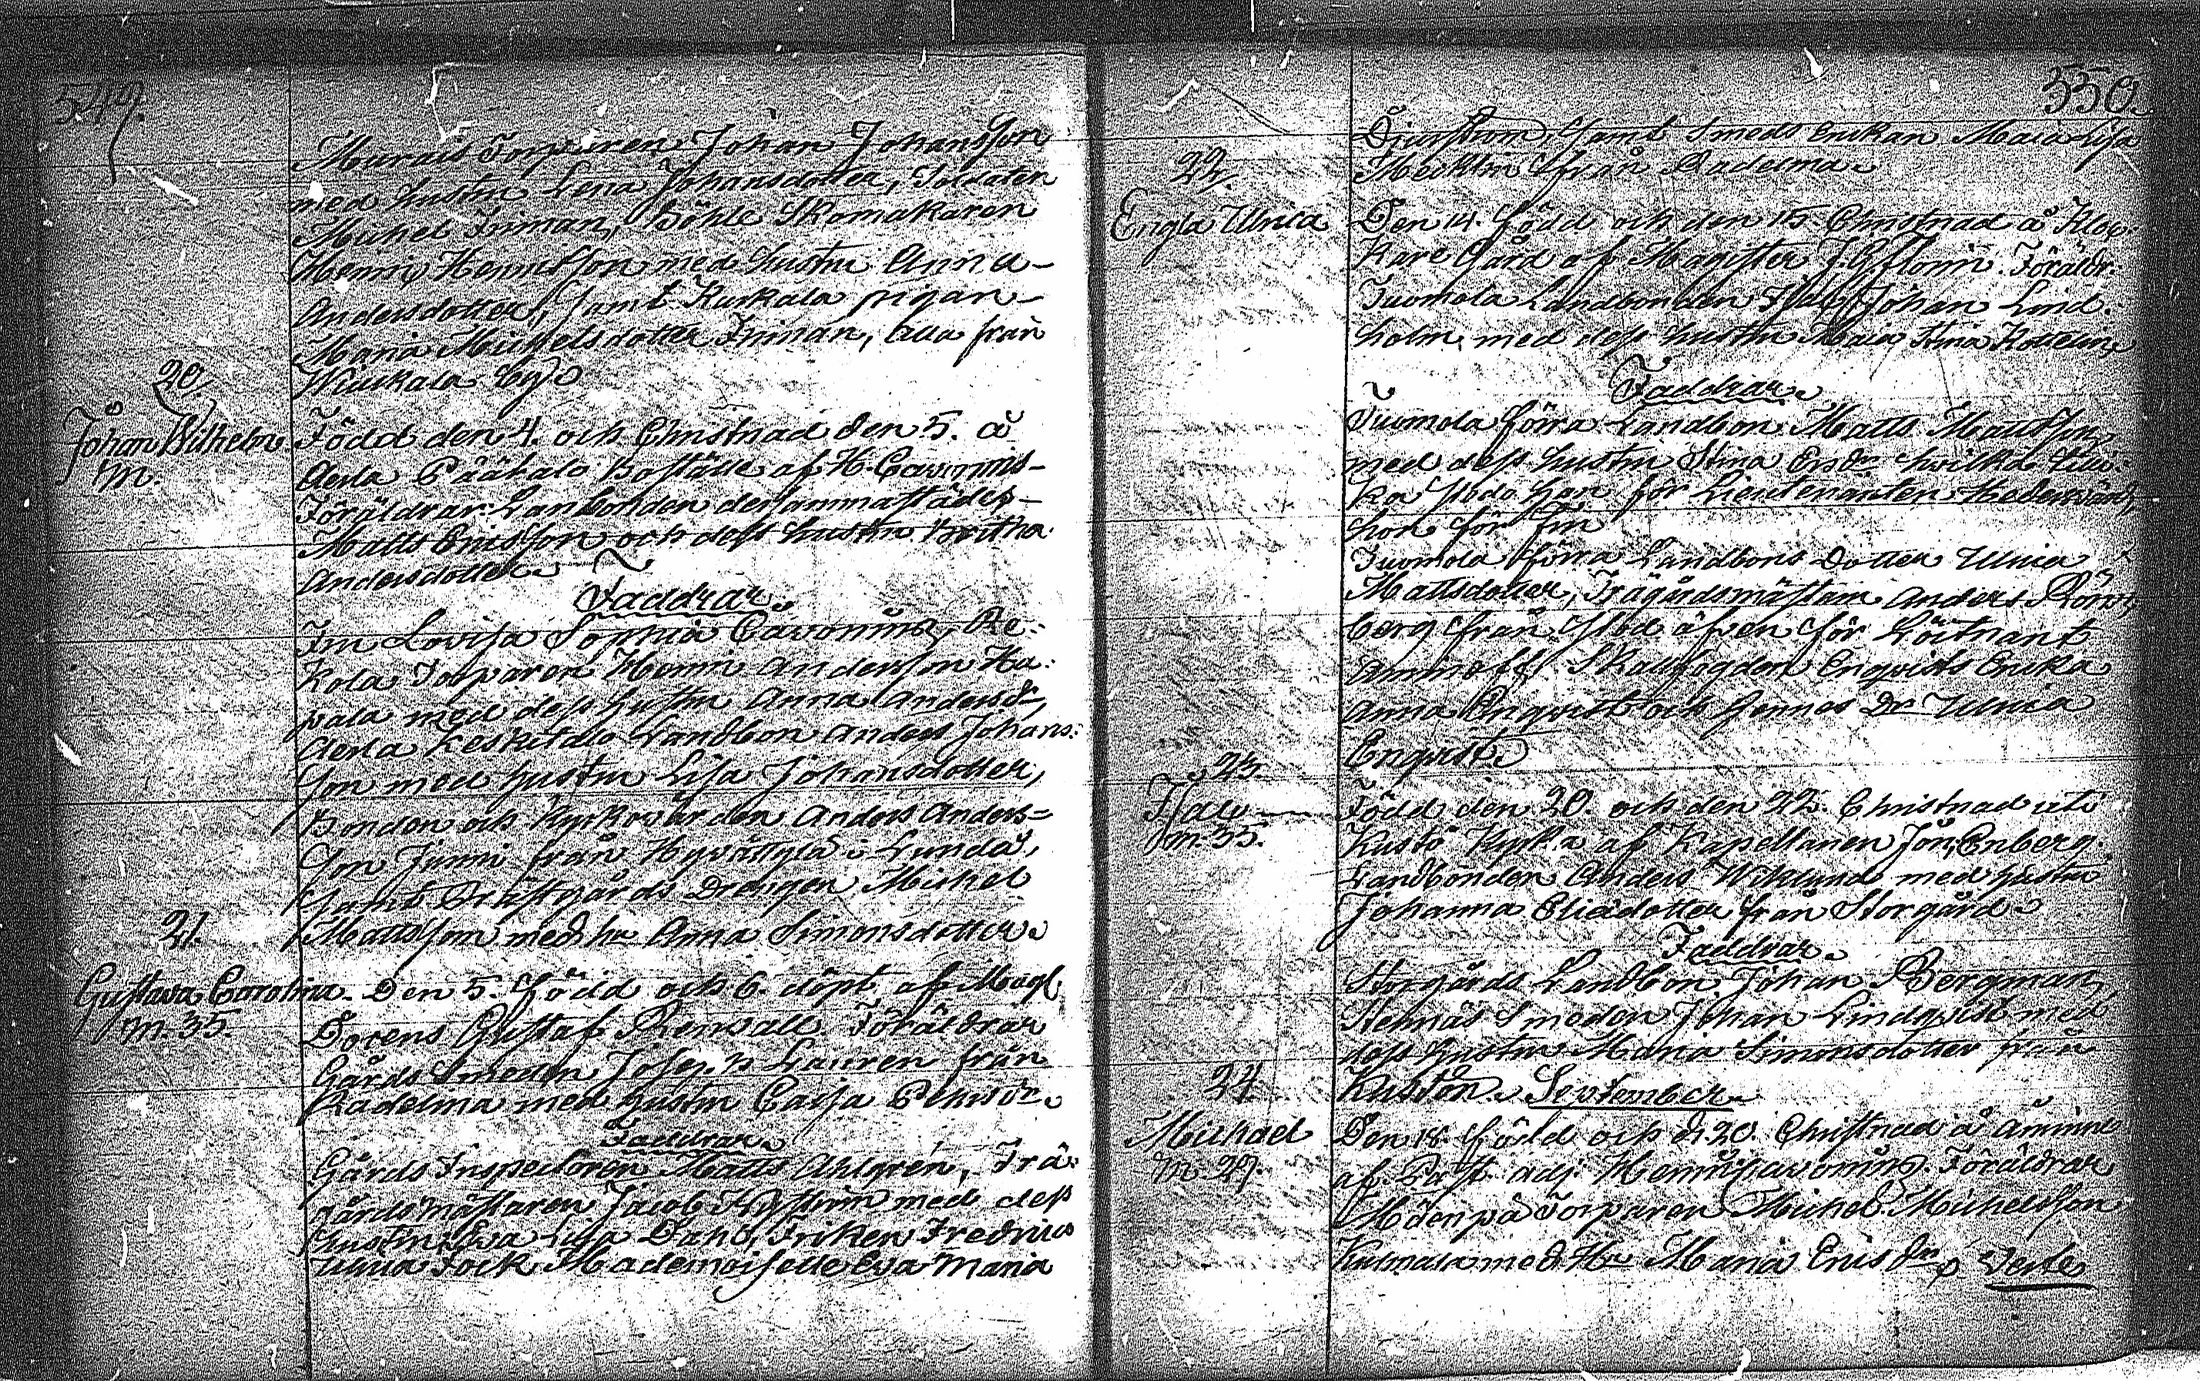 549.
Murais Torparen Johan Johansson
med hustru Lena Johansdotter, Soldaten
Michel Friman, Böhle Skomakaren
Henric Henricsson med hustru Anna
Andersdotter, samt Kuskala pigan
Maria Michelsdotter Friman, alla från
Wiuskala by
20
Johan Wilhelm
m.
Född den 4. och Christnad den 5. å
Aerla Päätalo Boställe af H. Cavonius
Föräldrar Landbonden dersammastädes
Matts Ericsson och dess hustru Britha
Andersdotter
Faddrar.
Fru Lovisa Sophia Cavonius, Re-
kola Torparen Henric Andersson Ha-
vala med dess hustru Anna Andersdr,
Aerla Keskitalo Landbon Anders Johans-
son med hustru Lisa Johansdotter,
Bonden och Kyrkovärden Anders Anders-
son Junni från Hyvättylä i Lundå,
samt Prästgårds Drängen Michel
Mattsson med hu Anna Simonsdotter
21.
Gustava Carolina.
m. 35.
Den 5. född och 6 döpt af Mag
Dorens Gustaf Renvall Föräldrar
Gårds Smeden Joseph Lauren från
Kadelma med hustru Caisa
Faddrar
Gårds Inspectoren Matts Ahlgren, Trä-
gårdsmästaren Jacob Hyström med dess
hustru Eva Lisa Dahl, Fröken Fredrica
Ulrica Fock Mademoiselle Eva Maria
550.
Djurström samt Smeds Enkan Maia Lisa
Mecklin från Radelma
22.
Engla Ulrica
Den 14. född och den 15. Christnad å Kloc-
kare Gård af Magister J. G. Florin. Föräldr:
Tuomola Landbonden Isac Johan Lind-
holm, med dess hustru Maia Stina
Faddrar
Tuomola förra Landbon Matts Mattsson
med dess hustru Stina Ersdr hvilka till-
ka stodo han för Lieutenanten
hon för sin
Tuomola förra Landbons Dotter Ulrica
Mattsdotter, Trägårdsmästarn Anders
berg från stod äfven för Löitnant
Aminoff Skallfogden Enqvists Enka
Anna Enqvist och hennes Dr Ulrica
Enqvist
23.
Isac
m. 35.
Född den 20. och den 22. Christnad uti
Kustö Kyrka af Kapellanen Jon. Enberg.
Landbonden Anders Wiklund med hustru
Johanna Eliædotter från Storgård
Faddrar
Storgårds Landbon Johan Bergman,
Stennäs Smeden Johan Lindqvist med
dess hustru Maria Simonsdotter från
Kustön. September
24
Michael
m. 29.
Den 18. född och d. 20. Christnad å Åminne
af Past. adj: Henric Cavonius. Föräldrar
Möenpä Torparen Michel Michelsson
Kulmala med Hu Maria Ericsdr Verte